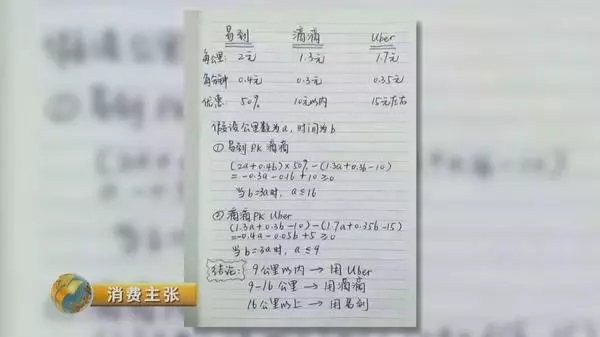 易到 滴滴 Uber
每公里: 2元 1.3元 1.7元
每分钟 0.4元 0.3元 0.35元
优惠: 50% 10元以内 15元左右
假设公里数为a,时间为b
① 易到 PK 滴滴
(2a+0.4b)×50%-(1.3a+0.3b-10)
=-0.3a-0.1b+10≥0
当b=3a时, a≤16
② 滴滴 PK Uber
(1.3a+0.3b-10)-(1.7a+0.35b-15)
=-0.4a-0.05b+5≥0
当b=3a时, a≤9
结论: 9公里以内→用Uber
9-16公里→用滴滴
16公里以上→用易到
消费主张